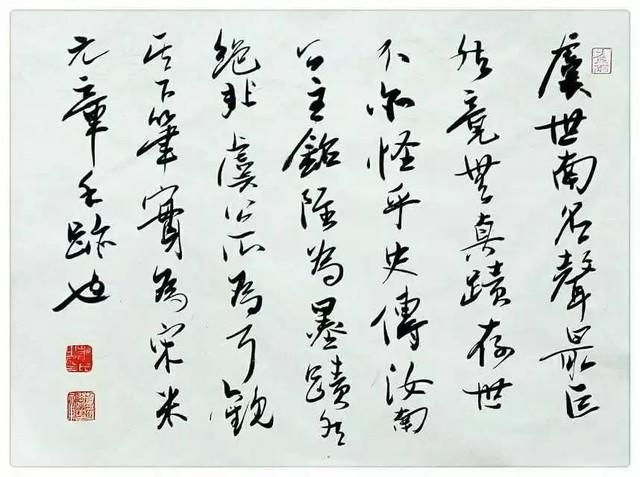 虞世南名聲最巨
然竟無真蹟存世
不亦怪乎史傳汝南
公主銘雖為墨蹟然
絕非虞公所為可觀
其下筆實為宋米
元章手跡也